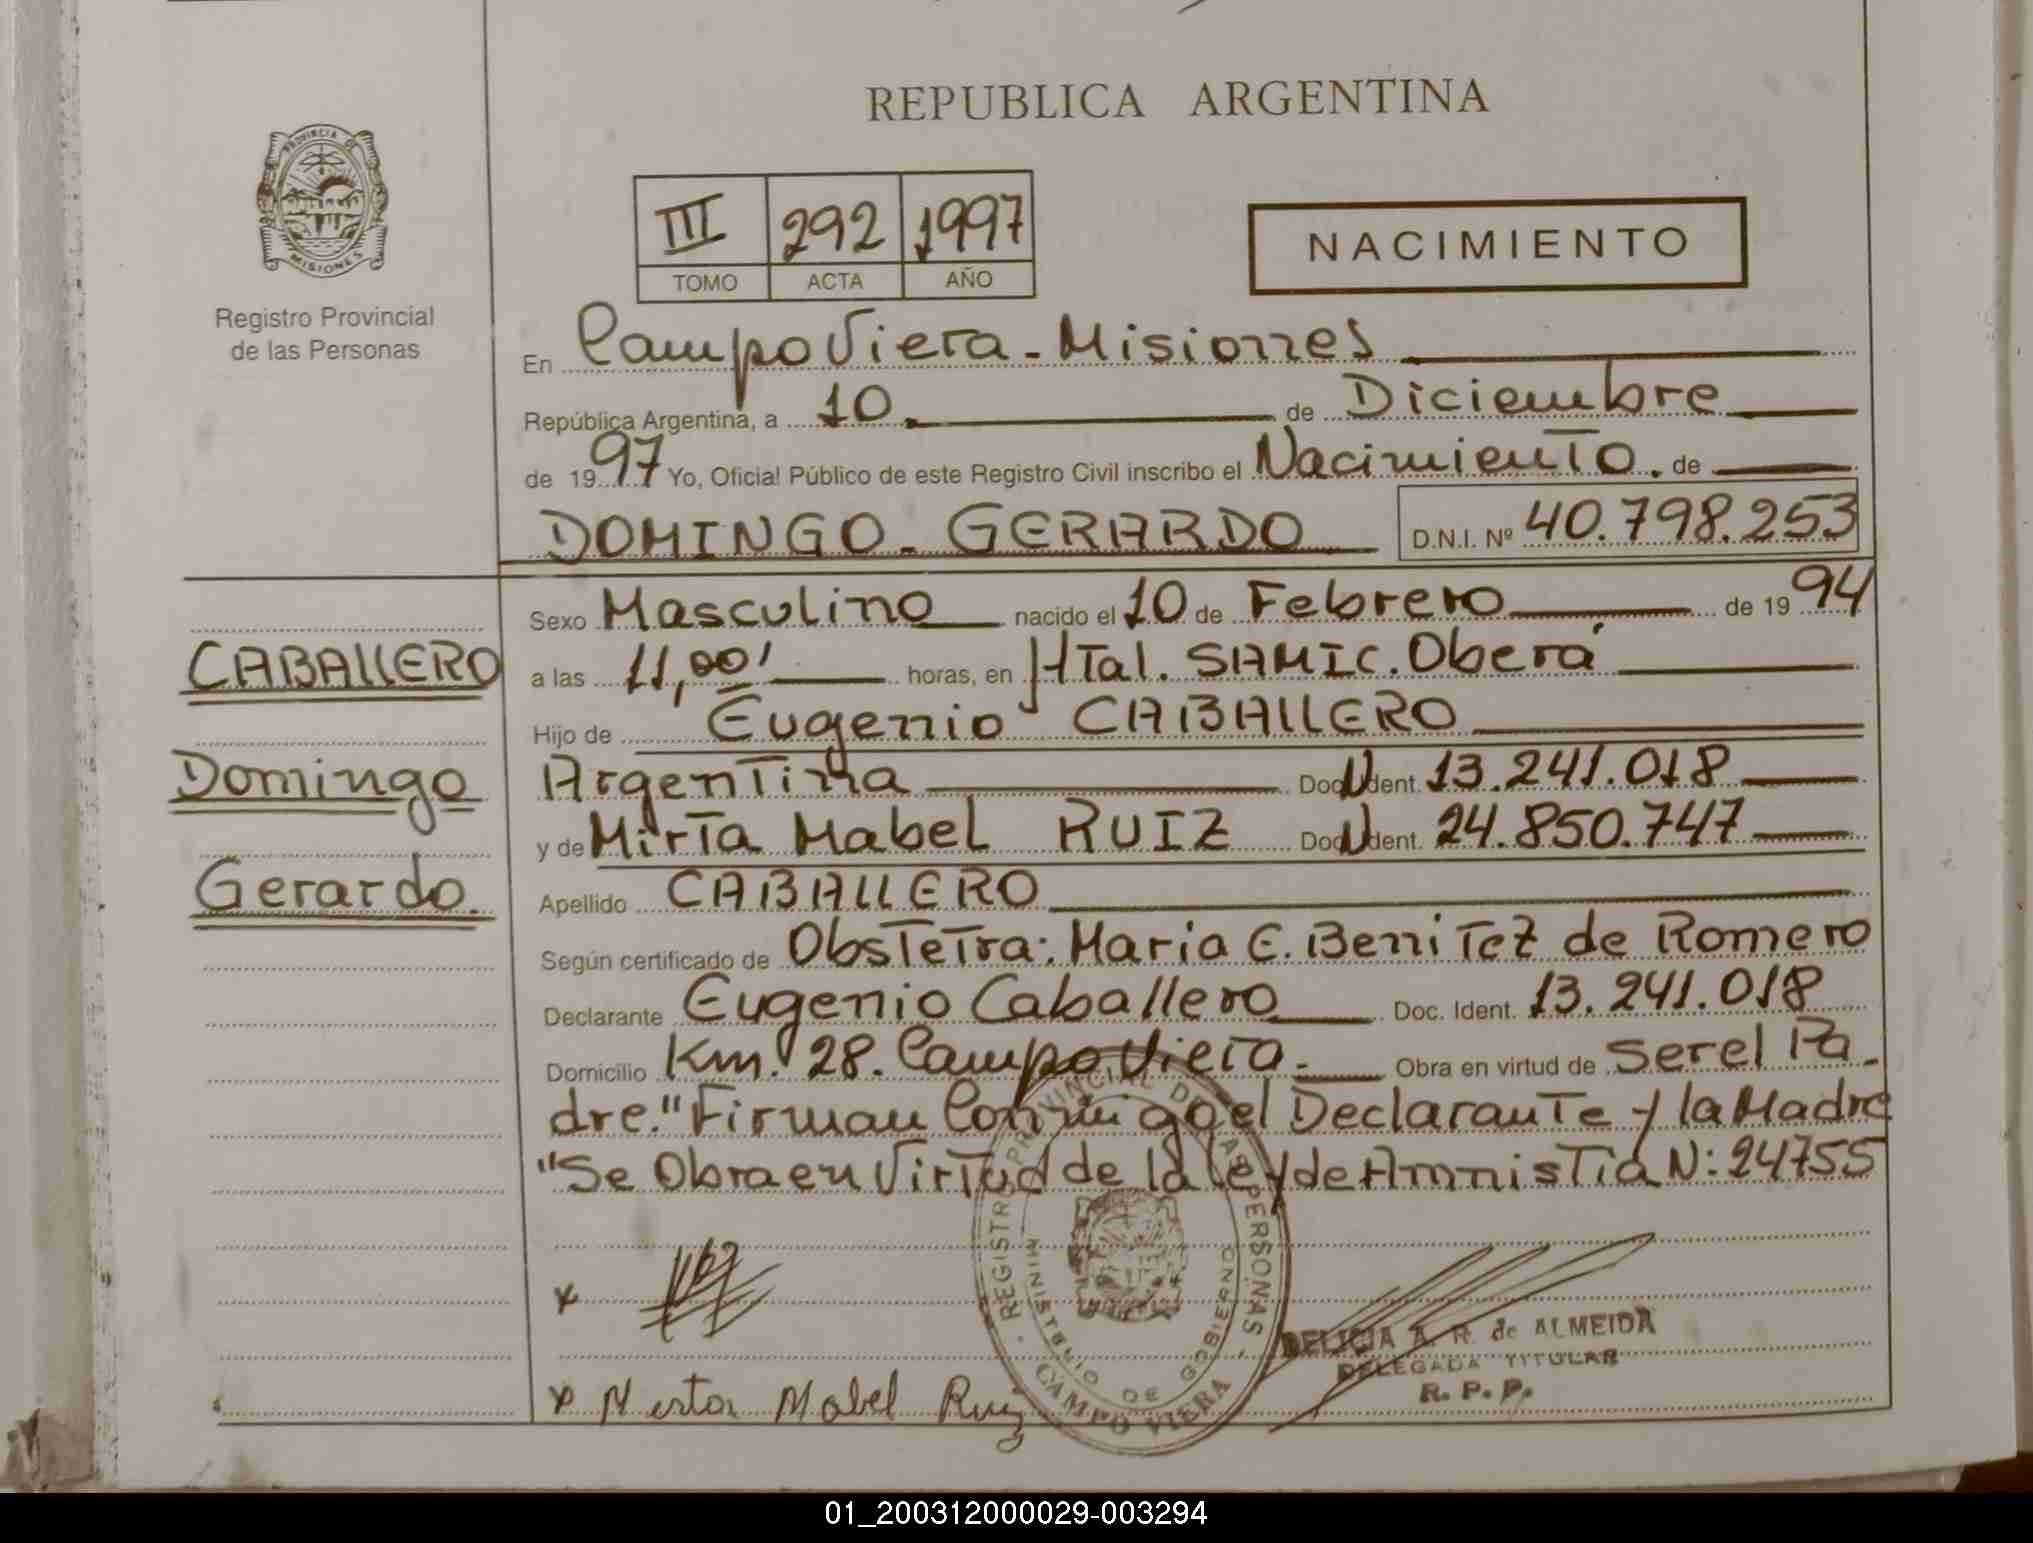 REPUBLICA ARGENTINA
PROVINCIA DE MISIONES
Registro Provincial
de las Personas
III 292 1997
TOMO ACTA AÑO
NACIMIENTO
En Campo Viera - Misiones
República Argentina, a 10. de Diciembre
de 1997 Yo, Oficial Público de este Registro Civil inscribo el Nacimiento. de
DOMINGO - GERARDO D.N.I. Nº 40.798.253
CABALLERO
Domingo
Gerardo.
Sexo Masculino nacido el 10 de Febrero de 1994
a las 11,00' horas, en Htal. SAMIC. Oberá
Hijo de Eugenio CABALLERO
Argentina Doc. Ident. 13.241.018
y de Mirta Mabel RUIZ Doc. Ident. 24.850.747
Apellido CABALLERO
Según certificado de Obstetra: Maria E. Benitez de Romero
Declarante Eugenio Caballero Doc. Ident. 13.241.018
Domicilio Km. 28. Campo Viera - Obra en virtud de ser el Pa-
dre." Firman Conmigo el Declarante y la Madre
"Se Obra en Virtud de la ley de Amnistia N: 24755
x
x Mirta Mabel Ruiz
REGISTRO PROVINCIAL DE LAS PERSONAS
MINISTERIO DE GOBIERNO
CAMPO VIERA
DELICIA A. R. de ALMEIDA
DELEGADA TITULAR
R. P. P.
01_200312000029-003294